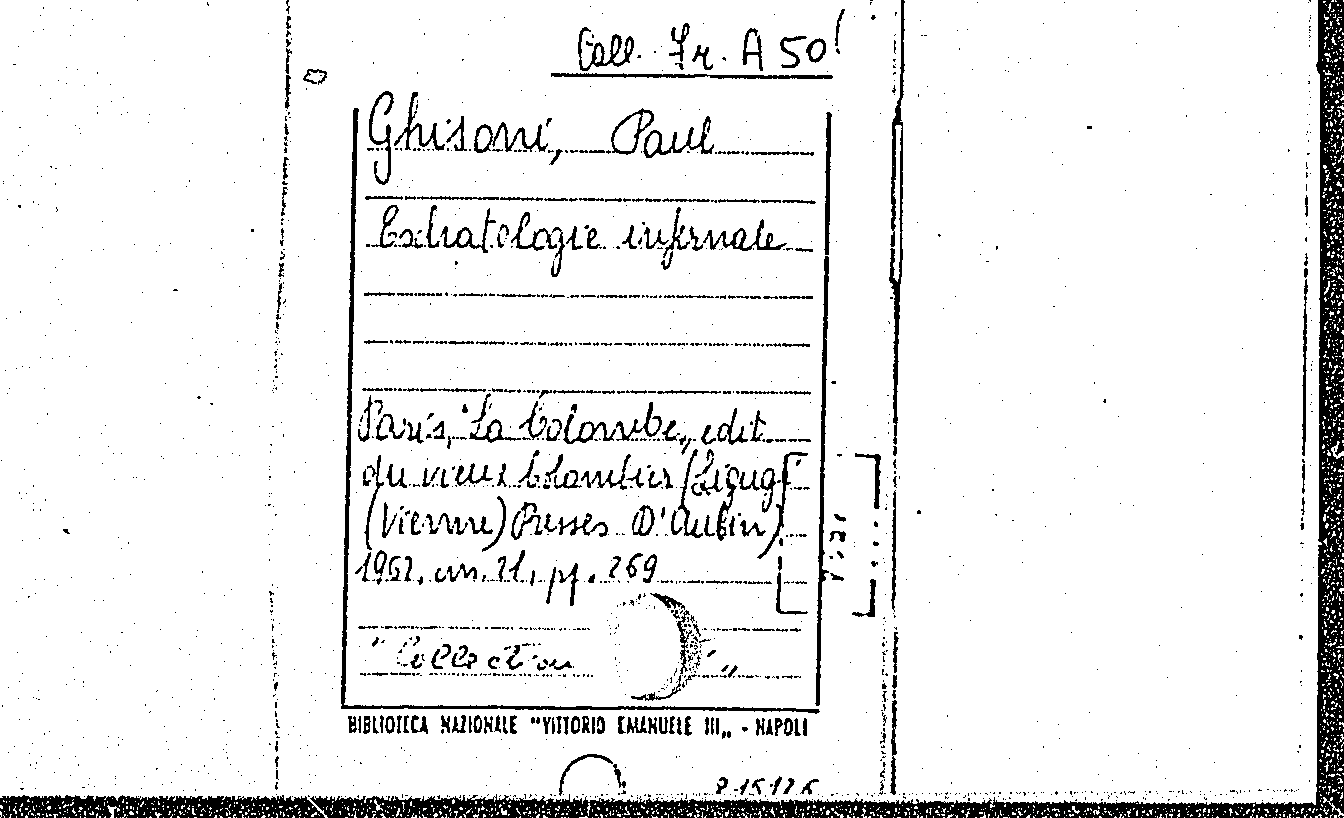 Coll. Fr. A 50
Ghisoni, Paul
Eschatologie infernale
Paris, "La Colombe,, edit
du vieux Colombier (Ligugé
(Vienne) Presses D'Aubin)
1962, cm. 21, pp. 269
"Collection ",,
BIBLIOTECA NAZIONALE "VITTORIO EMANUELE III,, - NAPOLI